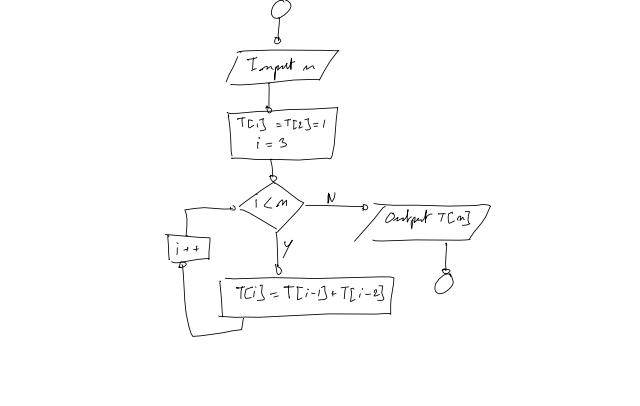 Input n
T[1] = T[2] = 1
i = 3
i < n
N
Output T[n]
i++
Y
T[i] = T[i-1] + T[i-2]